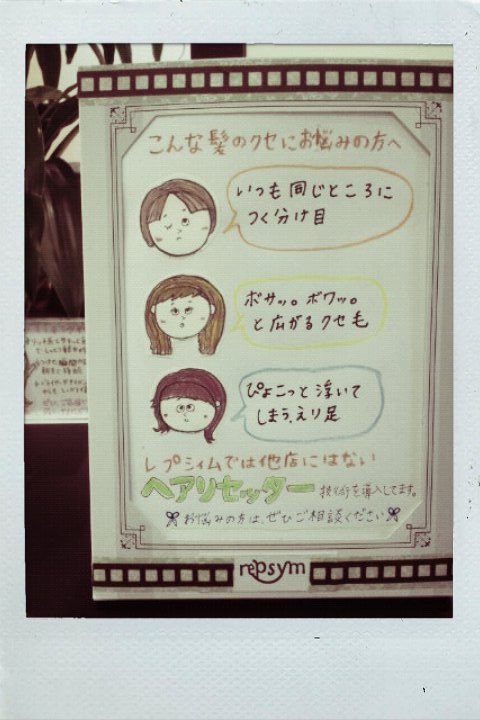 こんな髪のクセにお悩みの方へ
いつも同じところに
つく分け目
ボサッ。ボワッ。
と広がるクセ毛
ぴょこっと浮いて
しまう、えり足
レプシィムでは他店にはない
ヘアリセッター技術を導入してます。
お悩みの方は、ぜひご相談ください
repsym